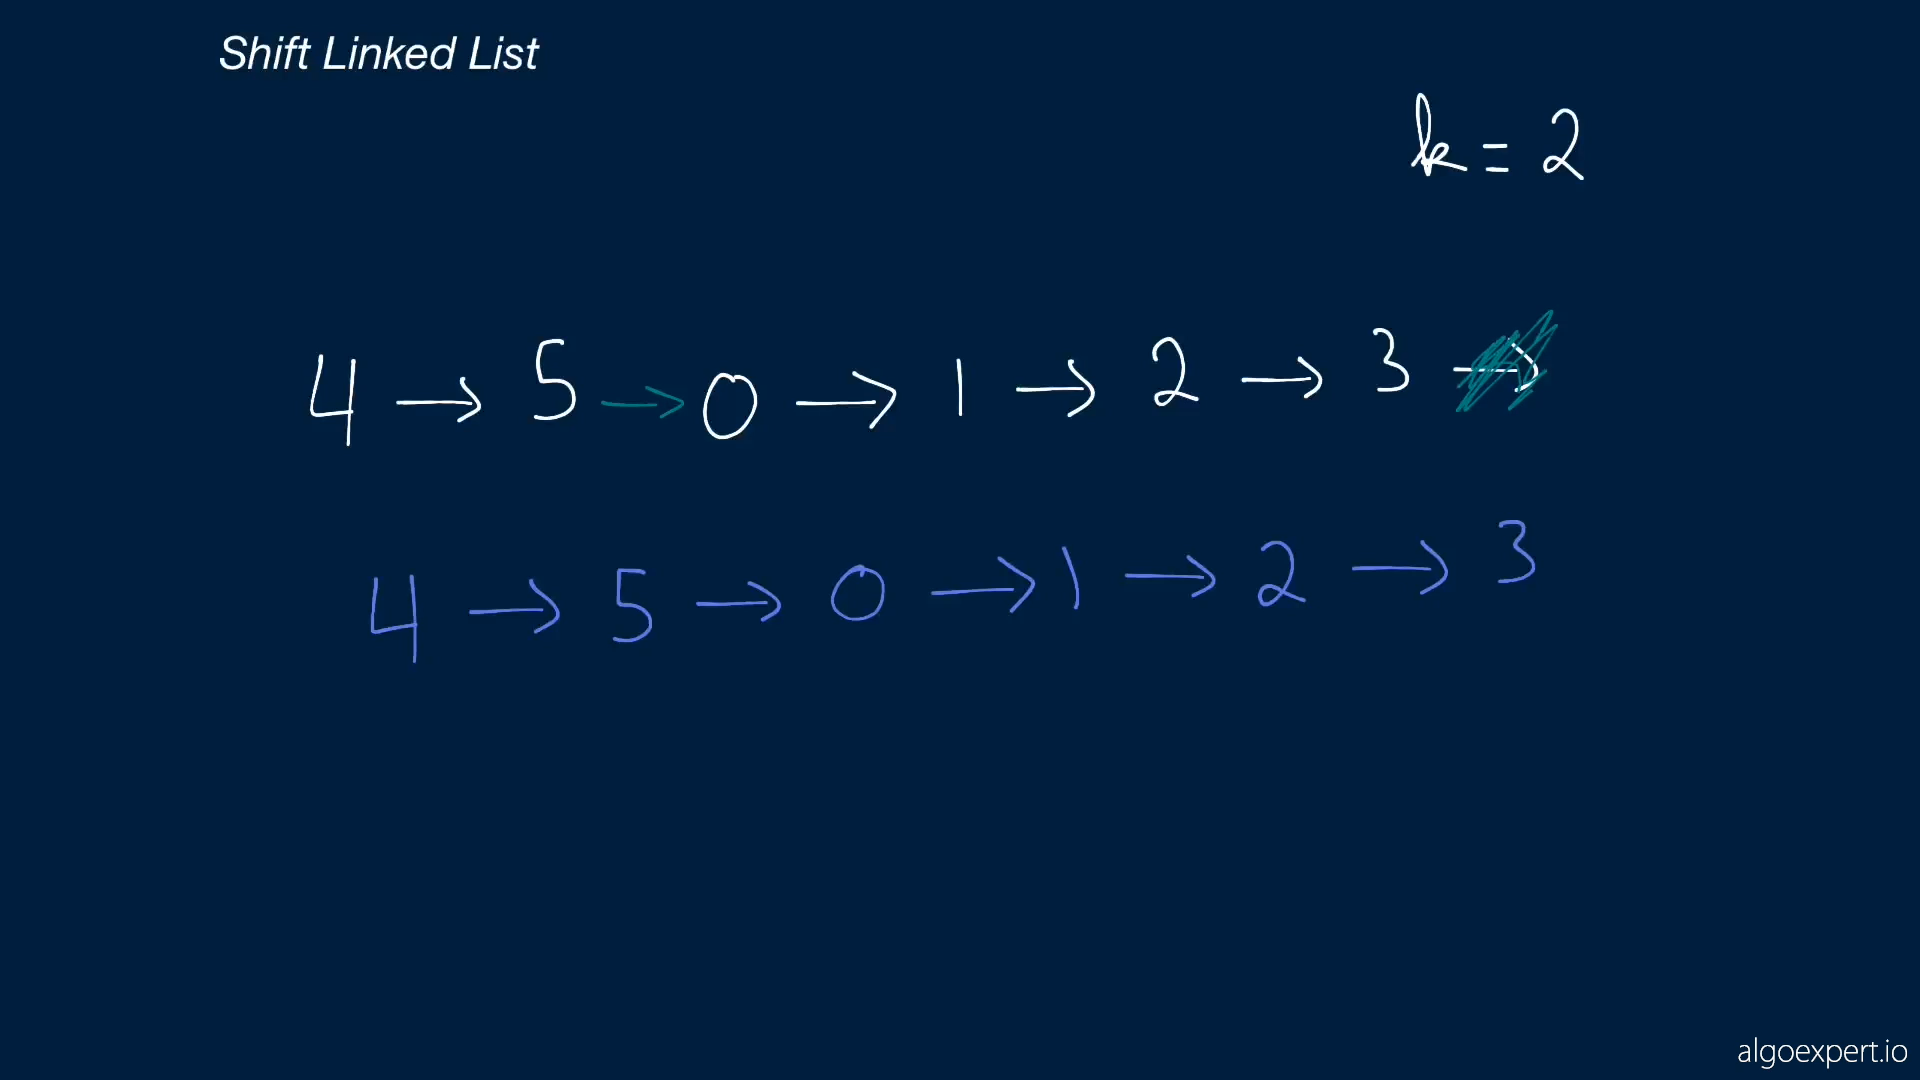 Shift Linked List
k = 2
4 → 5 → 0 → 1 → 2 → 3 →
4 → 5 → 0 → 1 → 2 → 3
algoexpert.io